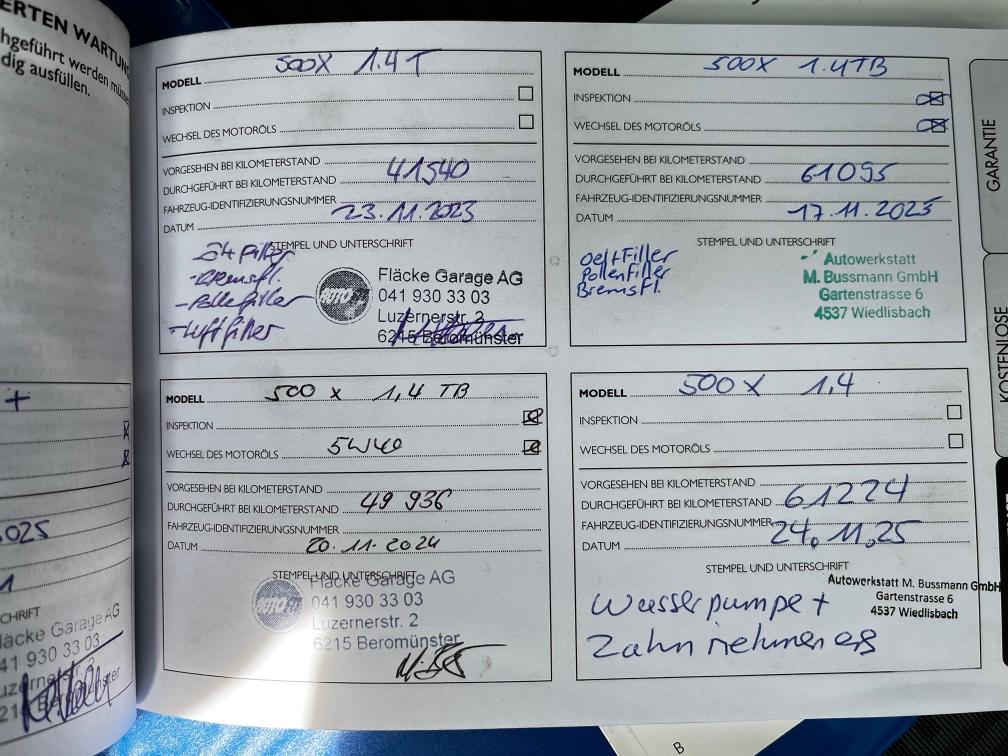 ERTEN WARTUN
hgeführt werden müsse
dig ausfüllen.
+
025
1
CHRIFT
läcke Garage AG
41 930 33 03
MODELL 500X 1.4T
INSPEKTION
WECHSEL DES MOTORÖLS
VORGESEHEN BEI KILOMETERSTAND
DURCHGEFÜHRT BEI KILOMETERSTAND 41540
FAHRZEUG-IDENTIFIZIERUNGSNUMMER
DATUM 23.11.2023
STEMPEL UND UNTERSCHRIFT
-Bremsfl.
-Pollefilter
-Luftfilter
AUTO
Fläcke Garage AG
041 930 33 03
Luzernerstr. 2
6215 Beromünster
MODELL 500X 1.4TB
INSPEKTION
WECHSEL DES MOTORÖLS
VORGESEHEN BEI KILOMETERSTAND
DURCHGEFÜHRT BEI KILOMETERSTAND 61095
FAHRZEUG-IDENTIFIZIERUNGSNUMMER
DATUM 17.11.2025
STEMPEL UND UNTERSCHRIFT
OelFilter
PollenFilter
Bremsfl.
Autowerkstatt
M. Bussmann GmbH
Gartenstrasse 6
4537 Wiedlisbach
MODELL 500 x 1,4 TB
INSPEKTION
WECHSEL DES MOTORÖLS 5W40
VORGESEHEN BEI KILOMETERSTAND
DURCHGEFÜHRT BEI KILOMETERSTAND 49 936
FAHRZEUG-IDENTIFIZIERUNGSNUMMER
DATUM 20.11.2024
STEMPEL UND UNTERSCHRIFT
AUTO
Fläcke Garage AG
041 930 33 03
Luzernerstr. 2
6215 Beromünster
MODELL 500X 1,4
INSPEKTION
WECHSEL DES MOTORÖLS
VORGESEHEN BEI KILOMETERSTAND
DURCHGEFÜHRT BEI KILOMETERSTAND 61224
FAHRZEUG-IDENTIFIZIERUNGSNUMMER
DATUM 24.11.25
STEMPEL UND UNTERSCHRIFT
Autowerkstatt M. Bussmann GmbH
Gartenstrasse 6
4537 Wiedlisbach
Wasserpumpe +
Zahnriehmen
GARANTIE
KOSTENLOSE
B